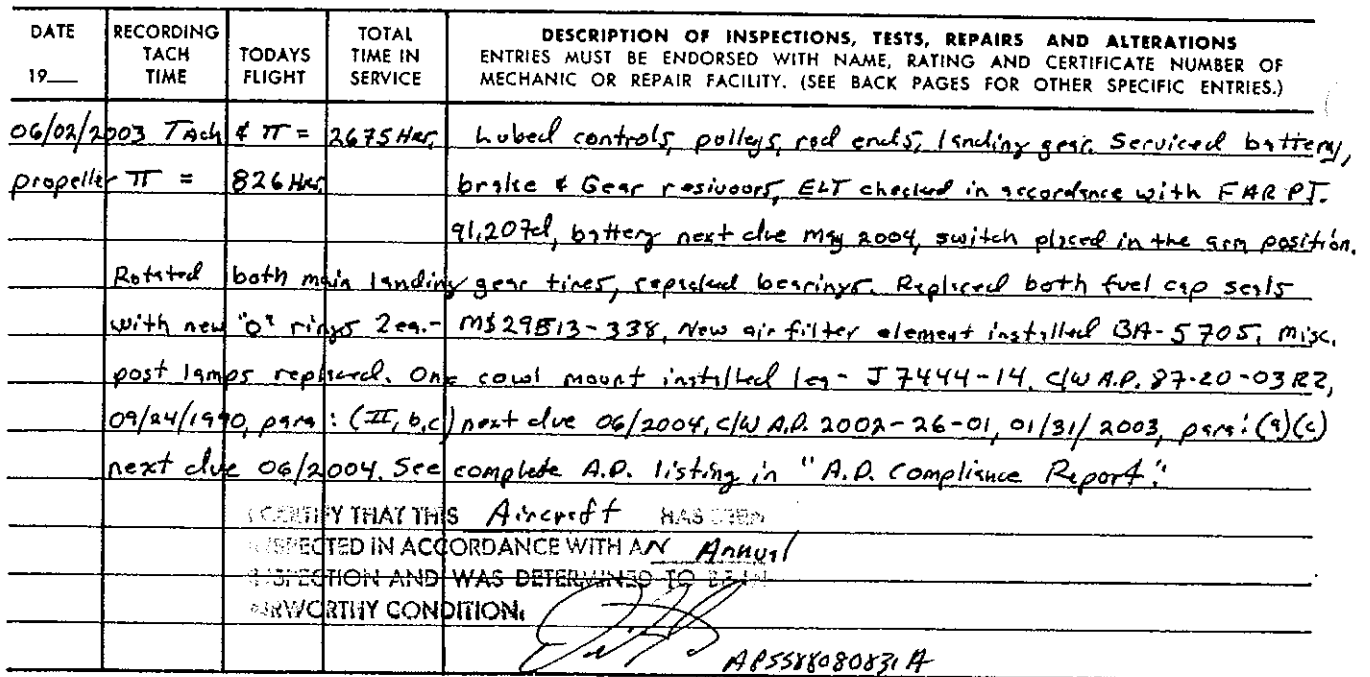 DATE 19__ RECORDING TACH TIME TODAYS FLIGHT TOTAL TIME IN SERVICE
DESCRIPTION OF INSPECTIONS, TESTS, REPAIRS AND ALTERATIONS
ENTRIES MUST BE ENDORSED WITH NAME, RATING AND CERTIFICATE NUMBER OF
MECHANIC OR REPAIR FACILITY. (SEE BACK PAGES FOR OTHER SPECIFIC ENTRIES.)
06/02/2003 Tach & TT = 2675 Hrs, Lubed controls, pulleys, rod ends, landing gear. Serviced battery,
propeller TT = 826 Hrs, brake & Gear resivoors, ELT checked in accordance with FAR PT.
91.207d, battery next due may 2004, switch placed in the arm position.
Rotated both main landing gear tires, repacked bearings. Replaced both fuel cap seals
with new "O" rings 2ea.- MS29513-338, New air filter element installed BA-5705, misc.
post lamps replaced. One cowl mount installed 1ea- J7444-14. C/W A.D. 87-20-03R2,
09/24/1990, para: (II, b,c) next due 06/2004. C/W A.D. 2002-26-01, 01/31/2003, para: (a)(c)
next due 06/2004. See complete A.D. listing in "A.D. Compliance Report".
I CERTIFY THAT THIS Aircraft HAS BEEN
INSPECTED IN ACCORDANCE WITH AN Annual
INSPECTION AND WAS DETERMINED TO BE IN
AIRWORTHY CONDITION.